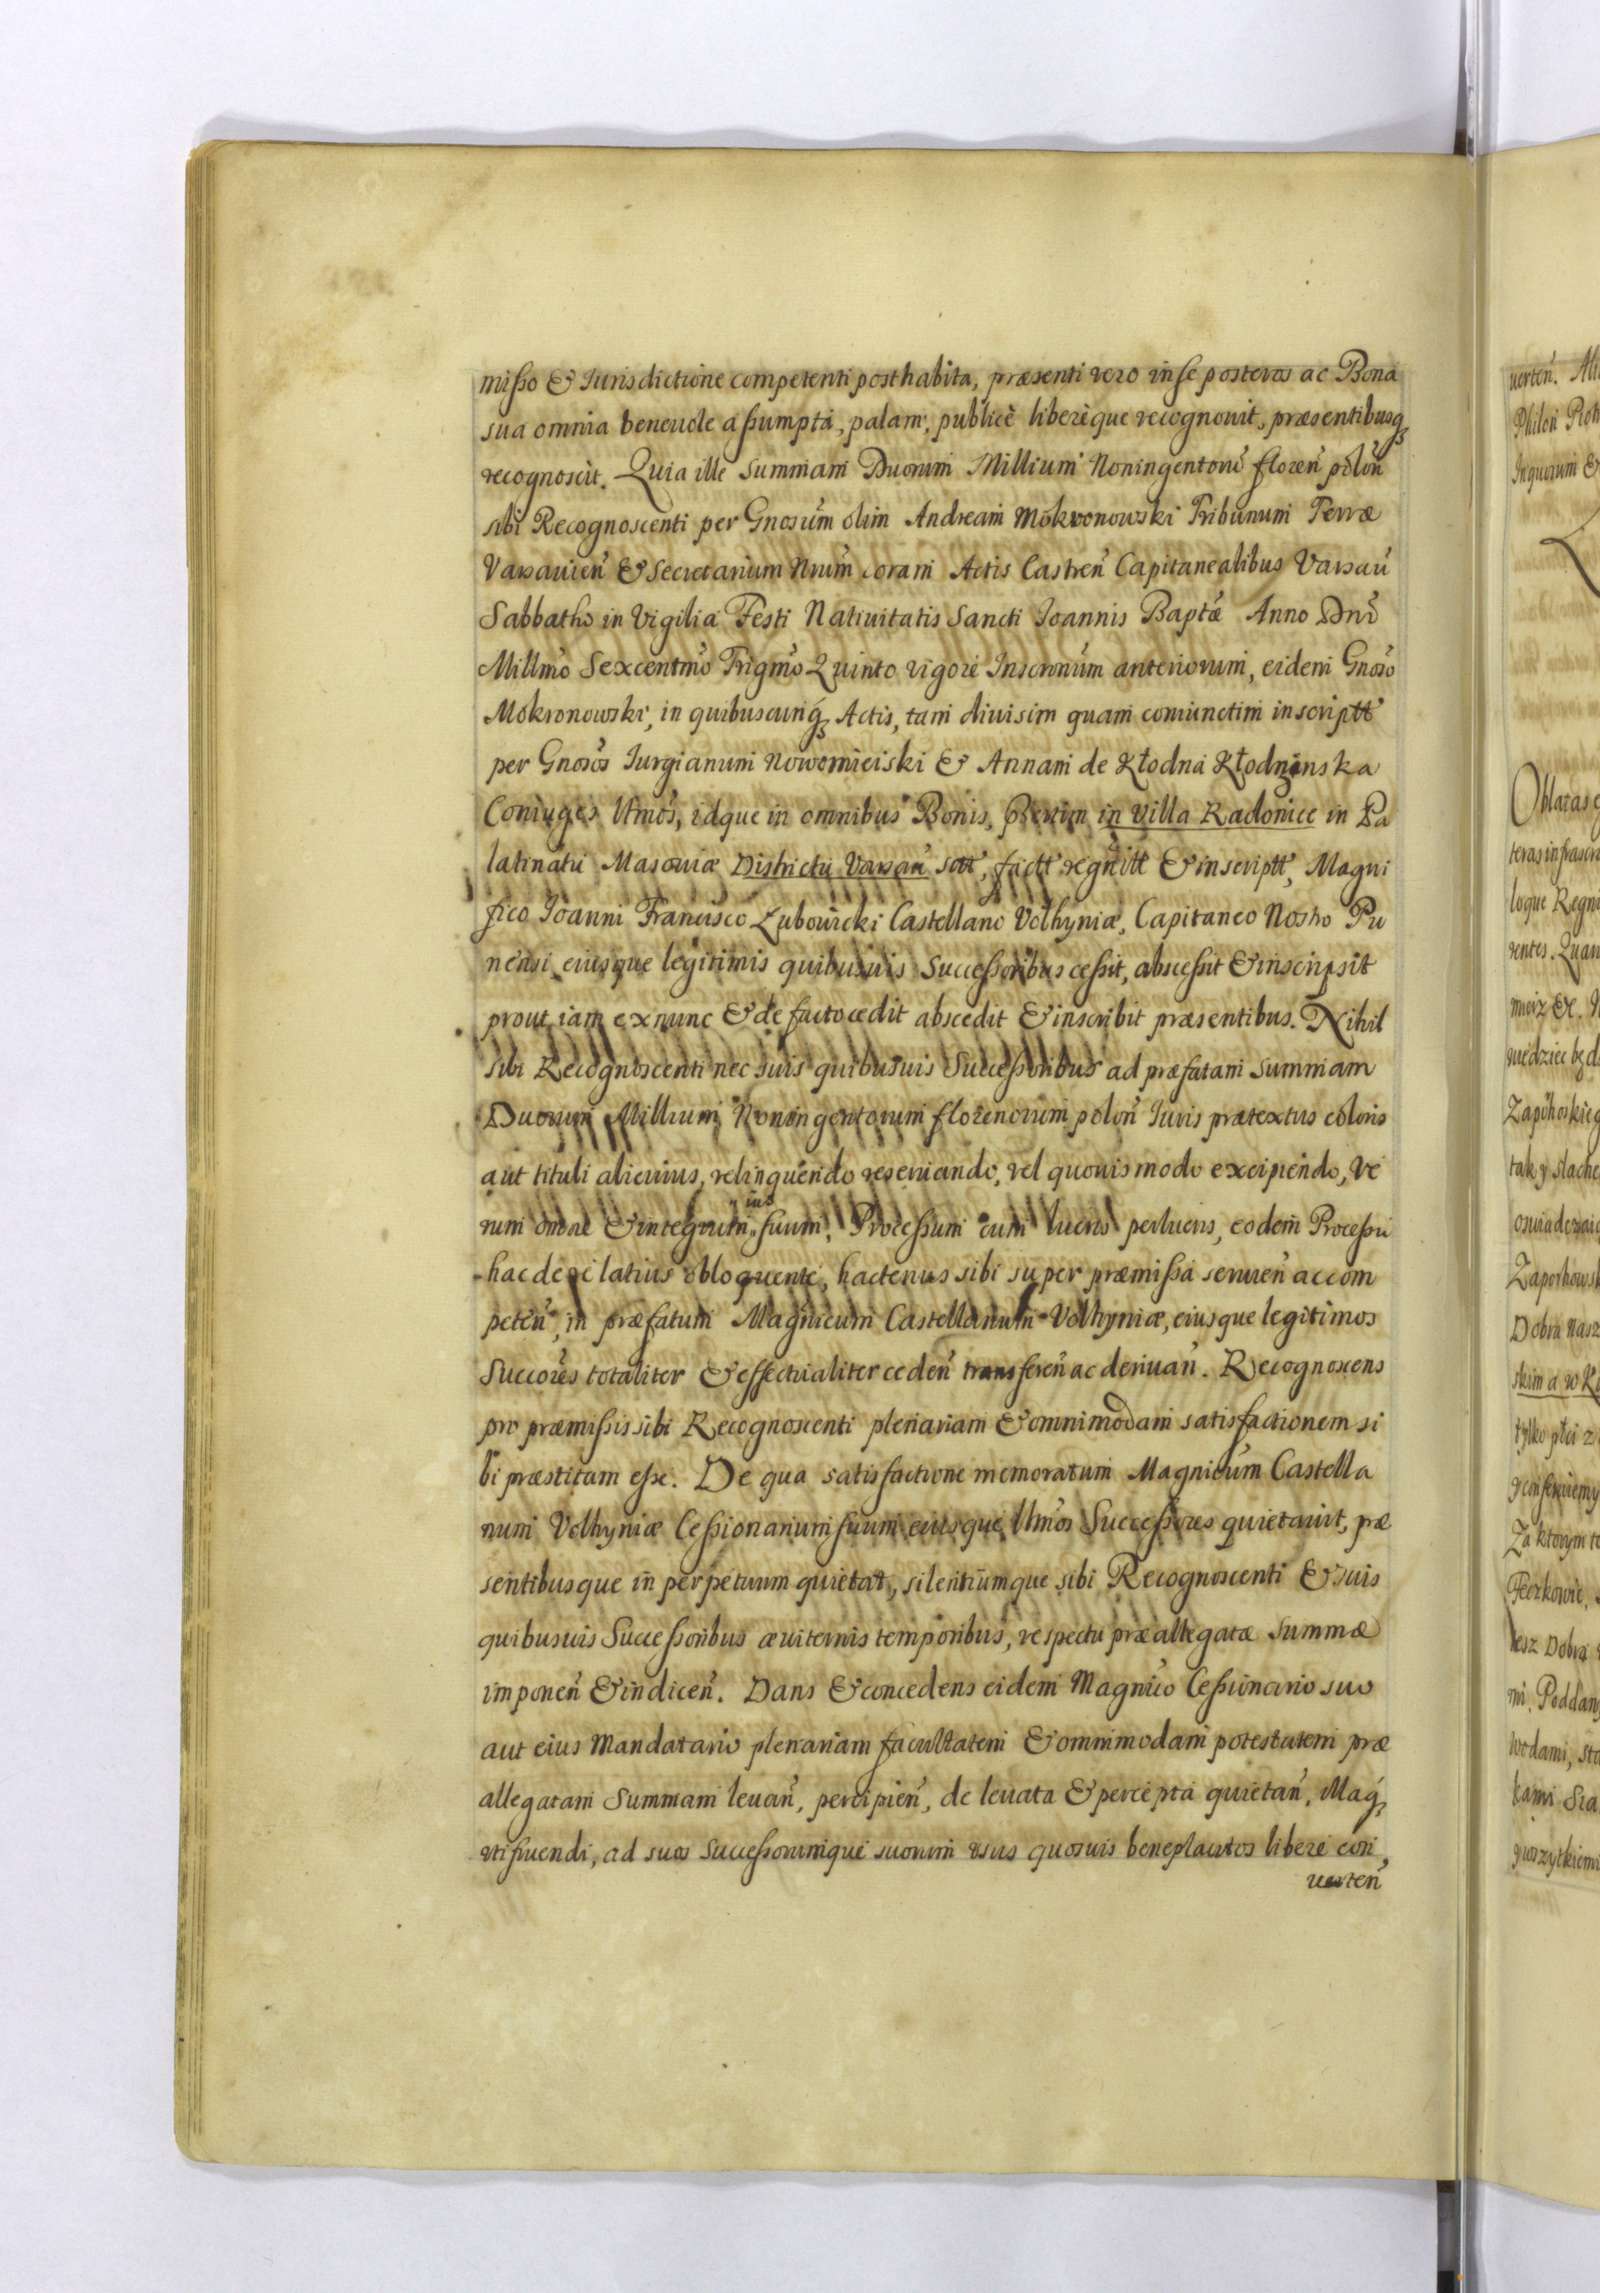 misso & Iurisdictione competenti posthabita, præsenti vero in se posteros ac Bona
sua omnia beneuole assumpta, palam, publicè liberèque recognouit, præsentibusq₃
recognoscit. Quia ille summam Duorum Millium Noningentorũ floreñ poloñ
sibi Recognoscenti per Gnosũm olim Andream Mokronowski Tribunum Terræ
Varsauieñ & Secretarium Nrũm coram Actis Castreñ Capitanealibus Varsaũ
Sabbatho in Vigilia Festi Natiuitatis Sancti Ioannis Baptæ Anno Dnĩ
Millmõ Sexcentmõ Trigmõ Quinto vigore Inscrnũm anteriorum, eidem Gnoso
Mokronowski, in quibuscunq₃ Actis, tam diuisim quam coniunctim inscriptt
per Gnosõs Iurgianum Nowomieiski & Annam de Kłodna Kłodzinska
Coniuges Ntmõs, idque in omnibus Bonis, in Villa Radonice in Pa
latinatu Masouiæ Districtu Varsaũ sitt, factt regnitt & inscriptt, Magni
fico Ioanni Francisco Lubowicki Castellano Volhyniæ, Capitaneo Nostro Pu
nensi eiusque legitimis quibusuis Successoribus cessit, abscessit & inscripsit
prout iam exnunc & de facto cedit abscedit & inscribit præsentibus. Nihil
sibi Recognoscenti nec suis quibusuis Successoribus ad præfatam summam
Duorum Millium Noningentorum florenorum poloñ Iuris prætextus coloris
aut tituli alicuius, relinquendo reseruando, vel quouis modo excipiendo, Ve
rum omne & integrum ius suum, Processum cum lucris perlucris, eodem Processu
hac de re latius obloquente, hactenus sibi super præmissa seruieñ ac com
peteñ, in præfatum Magnicum Castellanum Volhyniæ, eiusque legitimos
Succorẽs totaliter & effectualiter cedeñ transfereñ ac deriuañ. Recognoscens
pro præmissis sibi Recognoscenti plenariam & omnimodam satisfactionem si
bi præstitam esse. De qua satisfactione memoratum Magnicũm Castella
num Volhyniæ Cessionarium suum eiusque ltmõs Successores quietauit, præ
sentibusque in perpetuum quietat, silentiumque sibi Recognoscenti & suis
quibusuis Successoribus æuiternis temporibus, respectu præallegatæ summæ
imponeñ & indiceñ. Dans & concedens eidem Magnico Cessionario suo
aut eius Mandatario plenariam facultatem & omnimodam potestatem præ
allegatam summam leuañ, percipieñ, de leuata & percepta quietañ, Maq₃
utifruendi, ad suos Successorumque suorum usus quosuis beneplacitos libere con
uerteñ